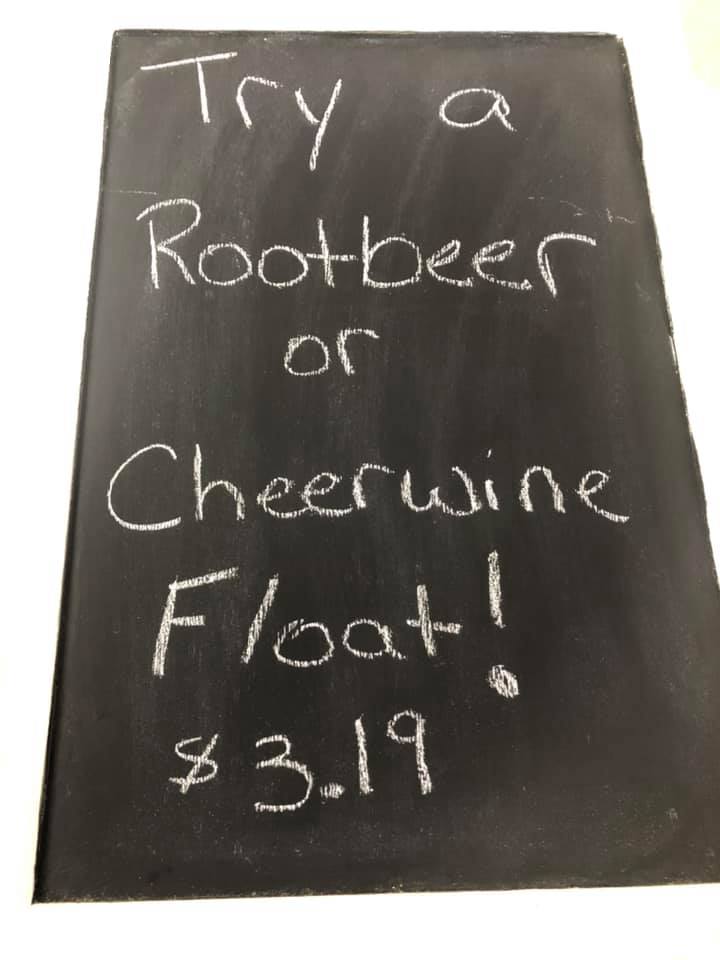 Try a
Rootbeer
or
Cheerwine
Float!
$3.19